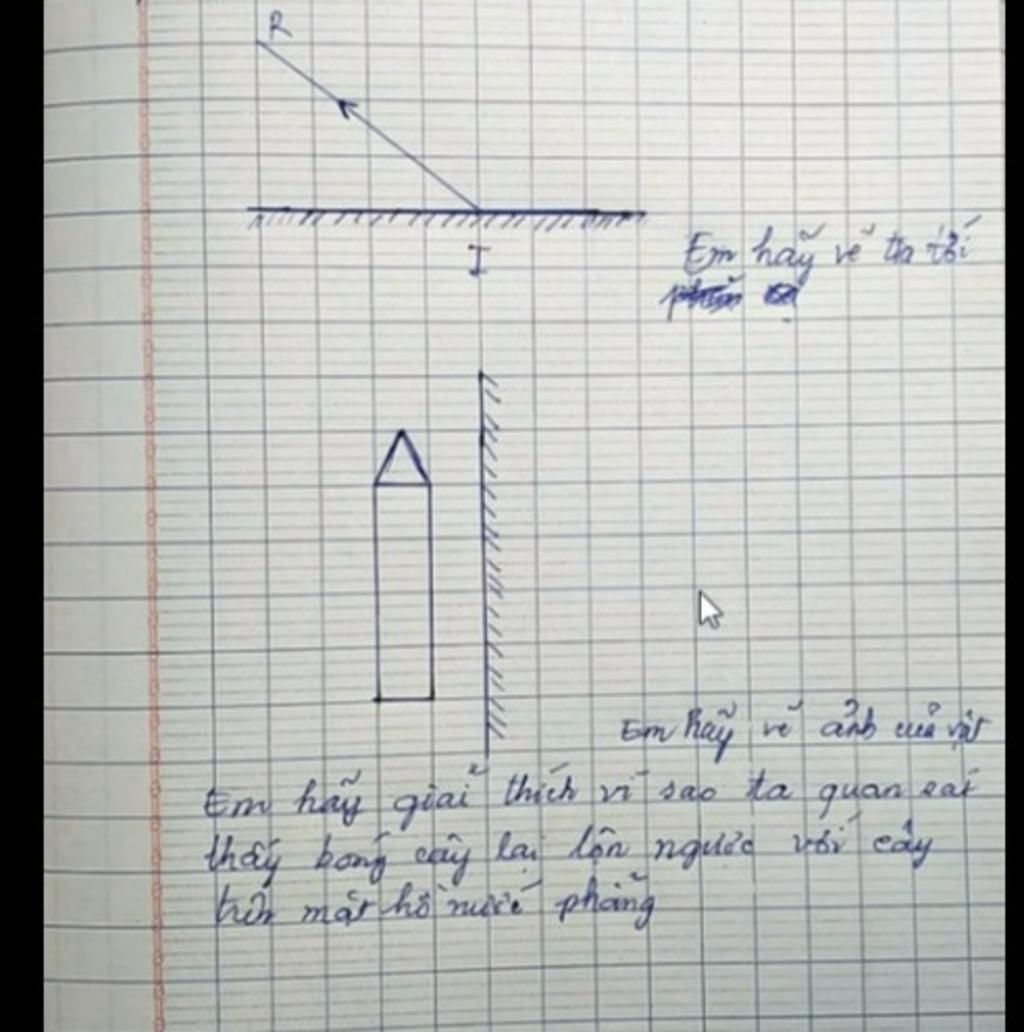 R
I
Em hãy vẽ tia tới
Em hãy vẽ ảnh của vật
Em hãy giải thích vì sao ta quan sát
thấy bóng cây lại lộn ngược với cây
trên mặt hồ nước phẳng